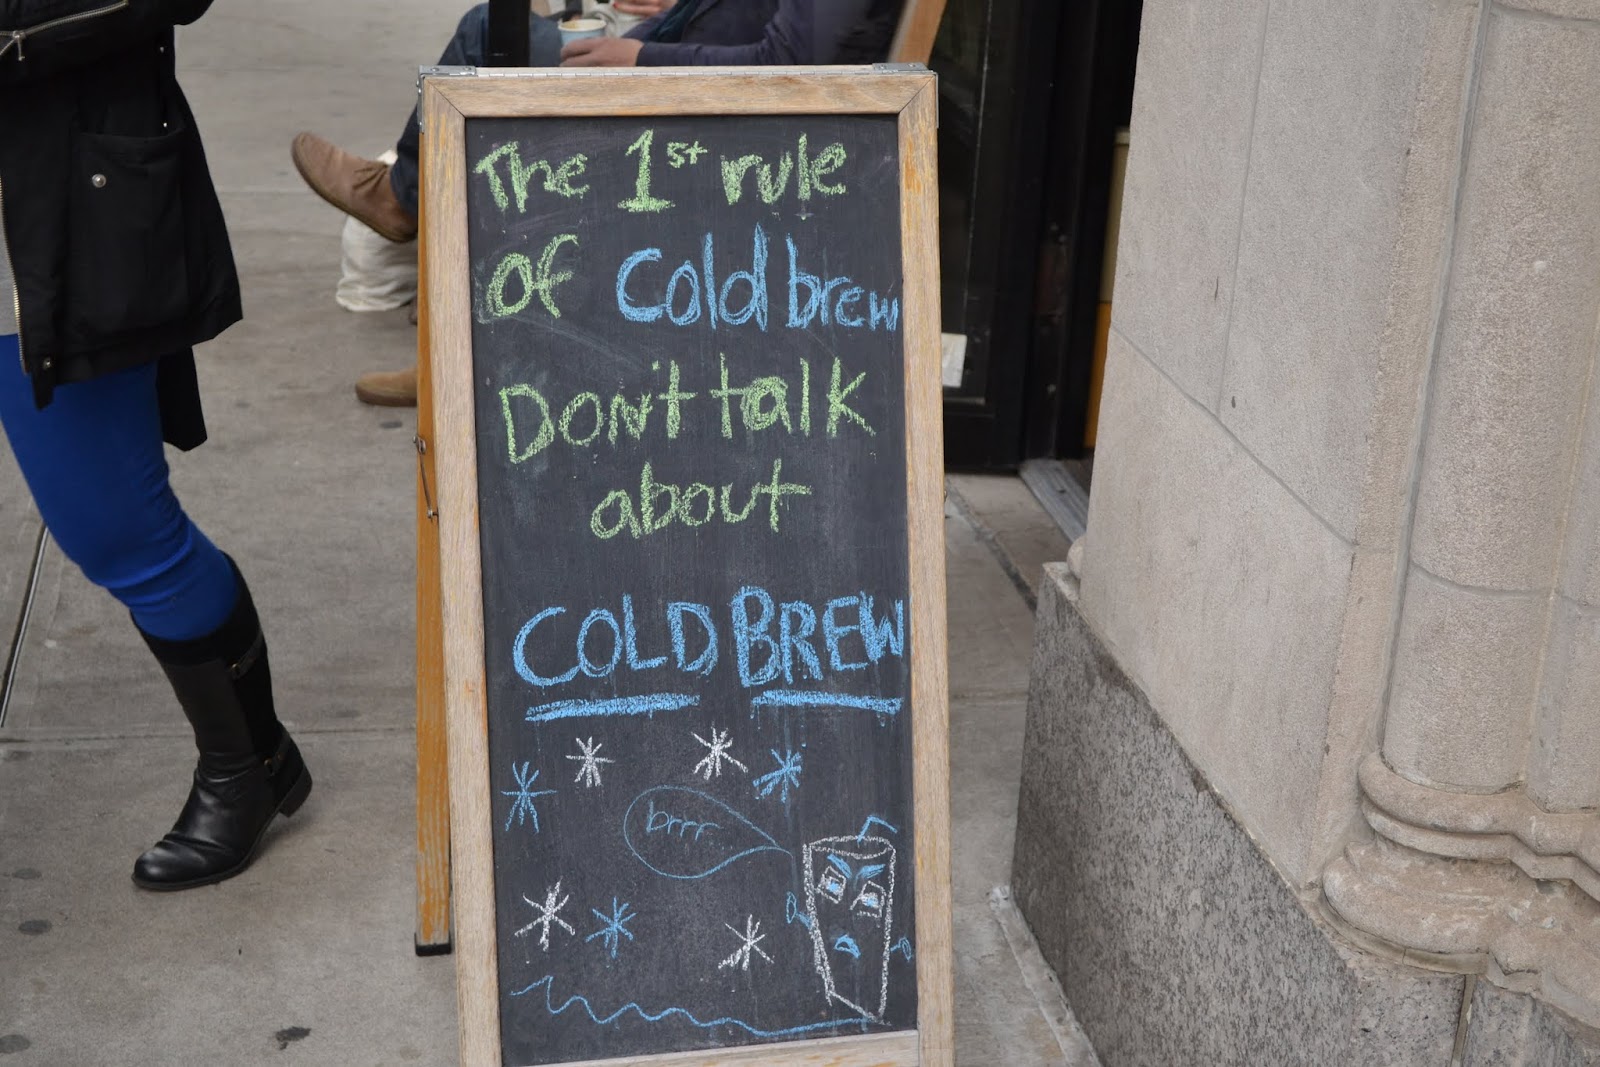 The 1st rule
of Cold brew
Don't talk
about
COLD BREW
brrr